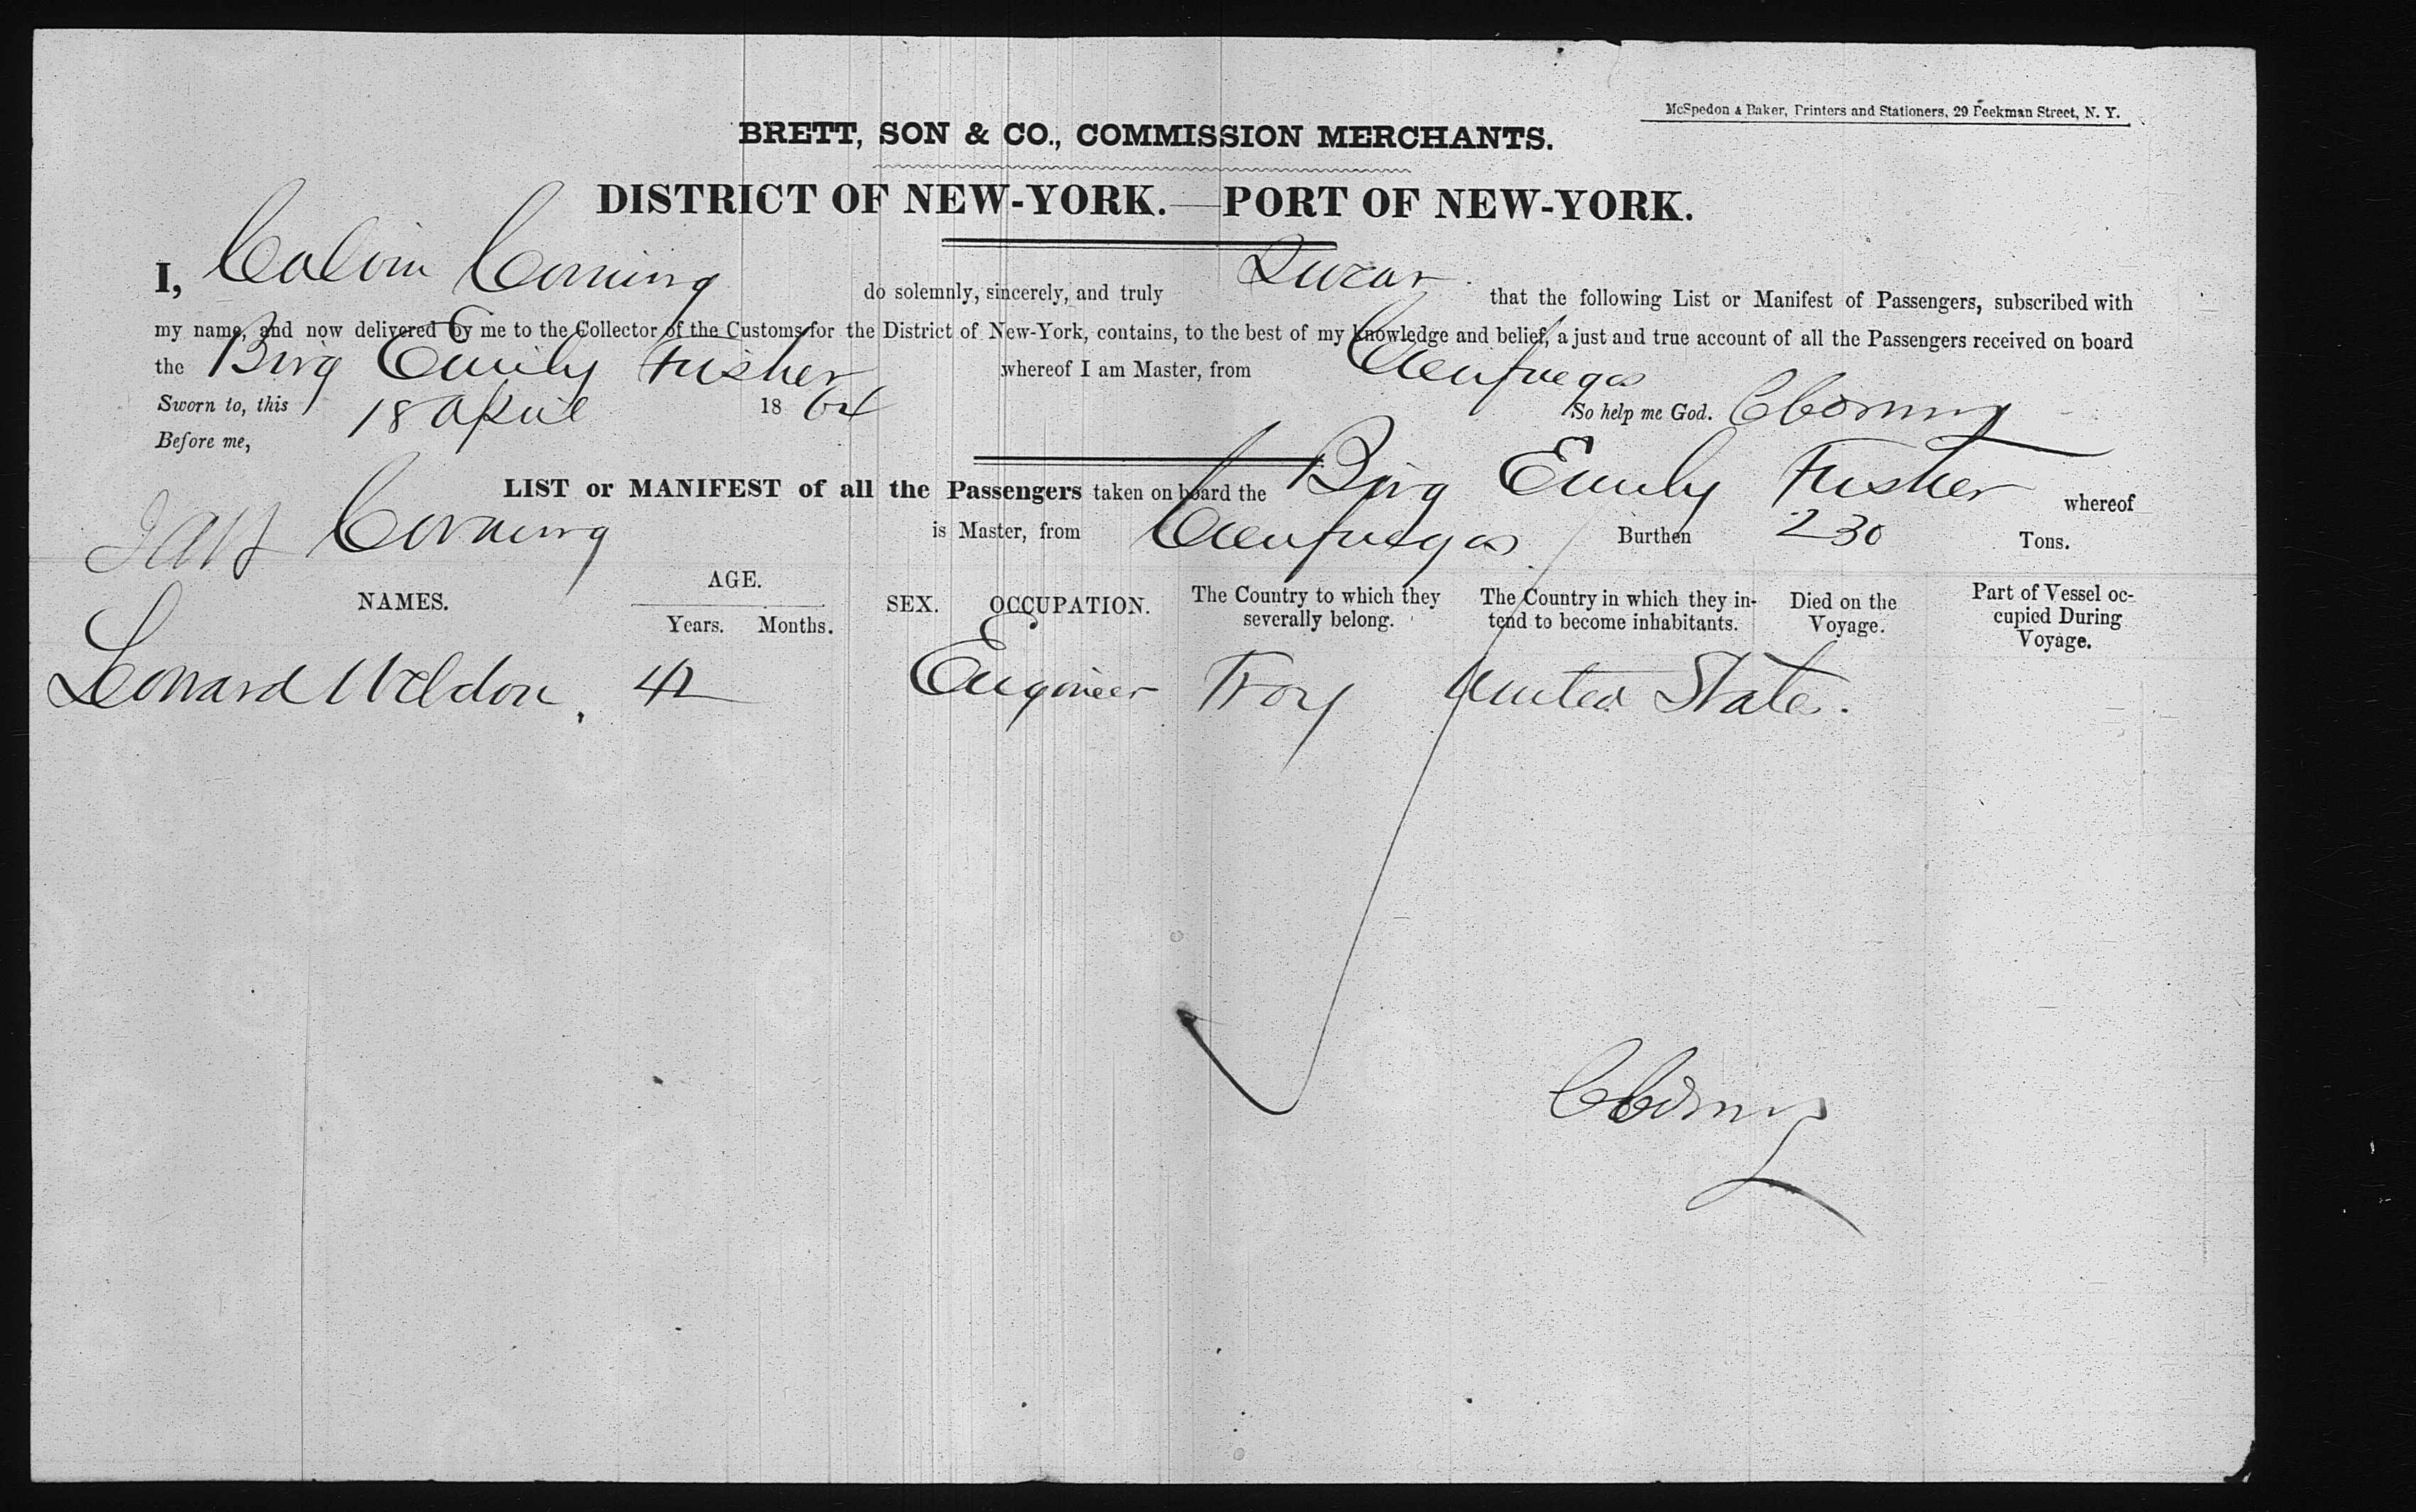 McSpedon & Baker, Printers and Stationers, 29 Beekman Street, N. Y.
BRETT, SON & CO., COMMISSION MERCHANTS.
DISTRICT OF NEW-YORK.—PORT OF NEW-YORK.
I, Calvin Corning do solemnly, sincerely, and truly Swear that the following List or Manifest of Passengers, subscribed with
my name, and now delivered by me to the Collector of the Customs for the District of New-York, contains, to the best of my knowledge and belief, a just and true account of all the Passengers received on board
the Brig Emily Fisher whereof I am Master, from Cienfuegos
Sworn to, this 18 April 1864 So help me God. C Corning
Before me,
LIST or MANIFEST of all the Passengers taken on board the Brig Emily Fisher whereof
Corning is Master, from Cienfuegos Burthen 230 Tons.
NAMES. AGE. Years. Months. SEX. OCCUPATION. The Country to which they severally belong. The Country in which they intend to become inhabitants. Died on the Voyage. Part of Vessel occupied During Voyage.
Leonard Weldon. 42 Engineer Troy United States.
C Corning